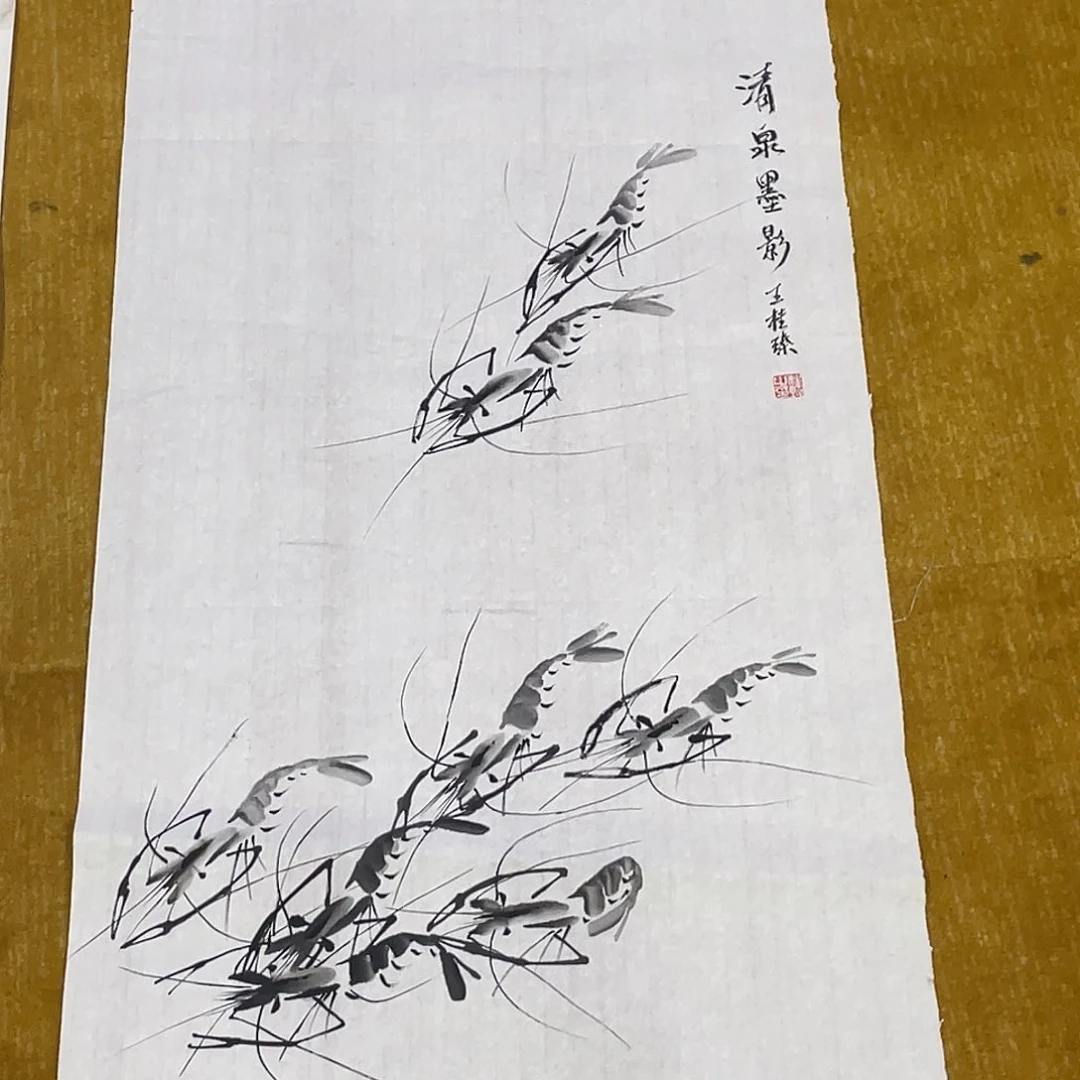 清泉墨影
王桂臻